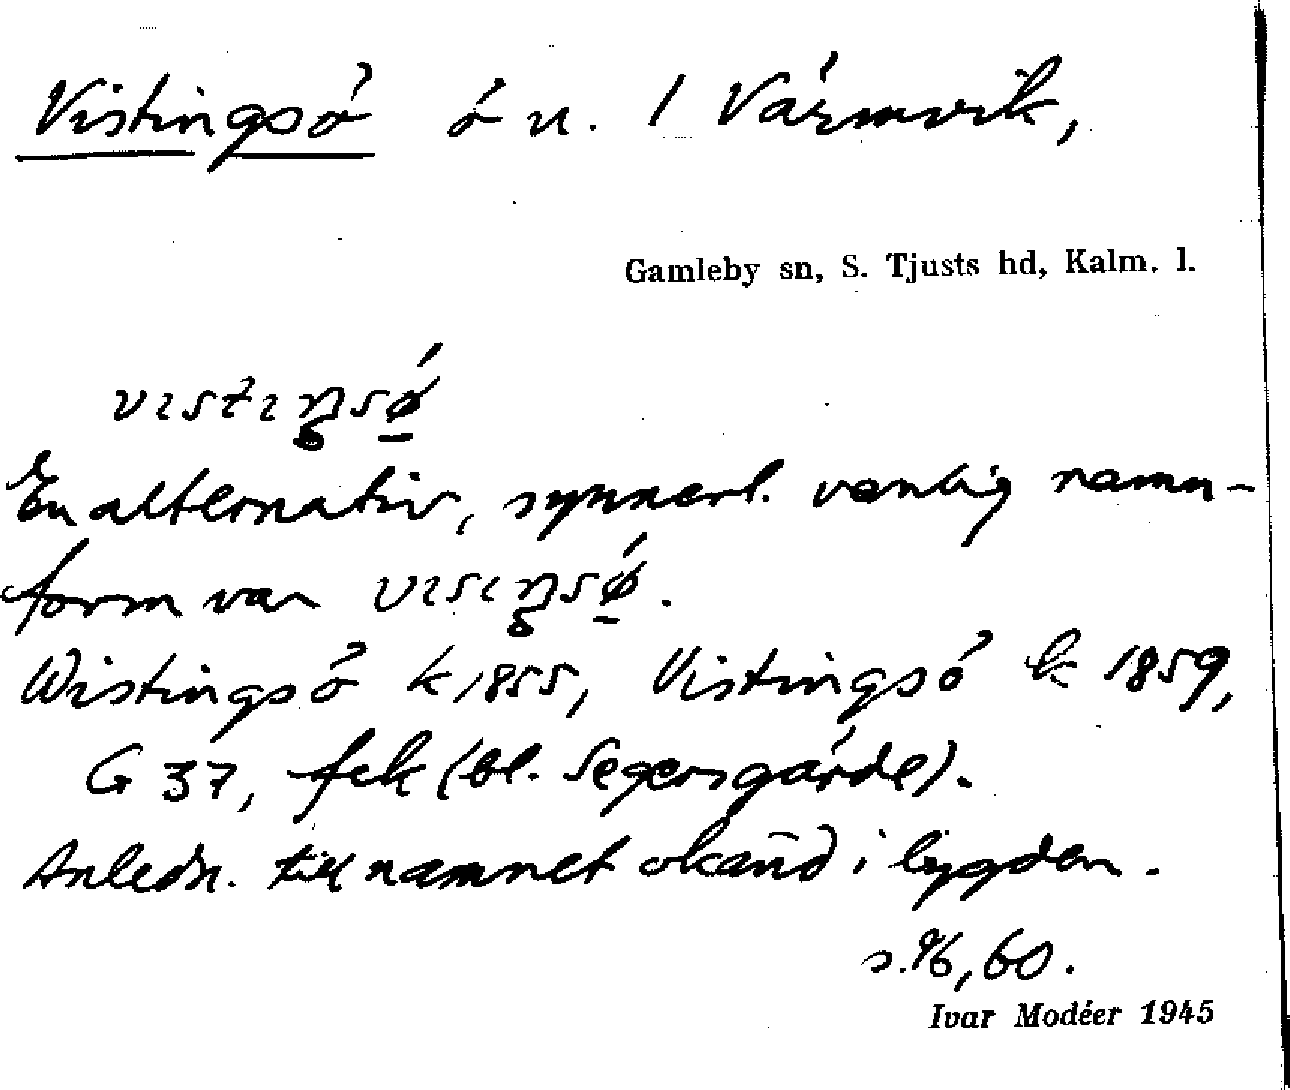 Vistingsö ö u. / Värmvik,
Gamleby sn, S. Tjusts hd, Kalm. l.
vɪstɪŋsø
En alternativ, synnerl. vanlig namn-
form var vɪsɪŋsø.
Wistingsö k 1855, Vistingsö k 1859,
G 37, fek (bl. Segersgärde).
Anledn. till namnet okänd i bygden.
s. 96, 60.
Ivar Modéer 1945